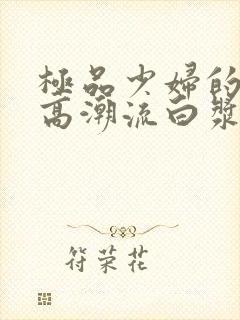 極品少婦的
高潮流白漿
符荣花